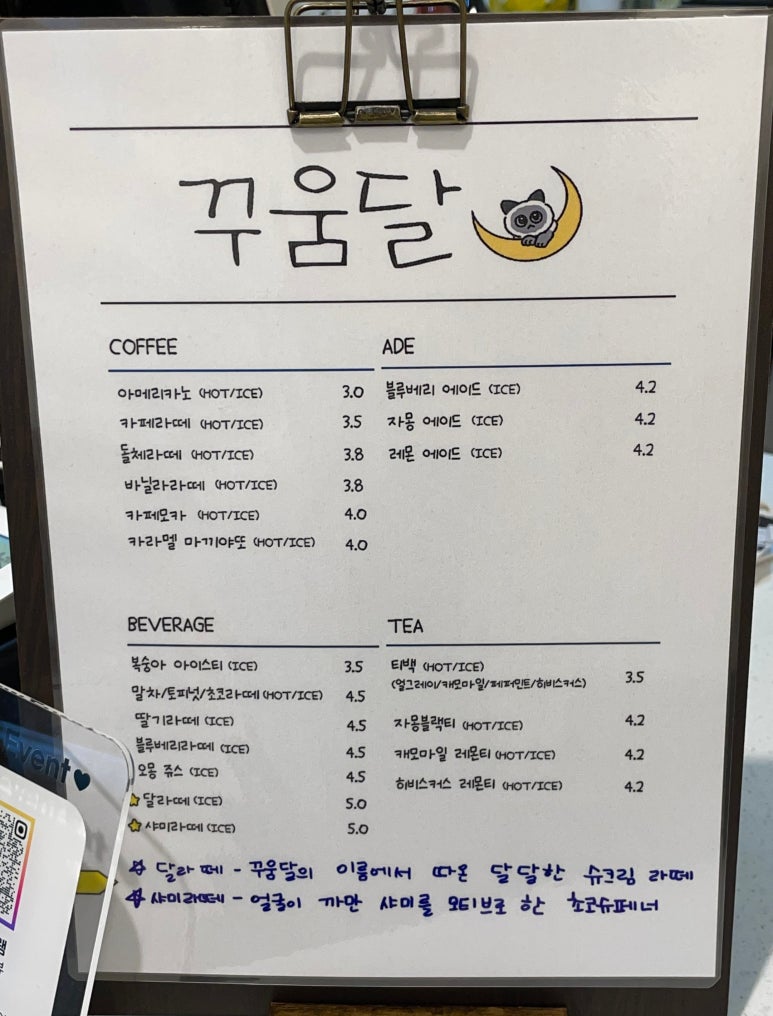 꾸움달
COFFEE
아메리카노 (HOT/ICE) 3.0
카페라떼 (HOT/ICE) 3.5
돌체라떼 (HOT/ICE) 3.8
바닐라라떼 (HOT/ICE) 3.8
카페모카 (HOT/ICE) 4.0
카라멜 마끼야또 (HOT/ICE) 4.0
ADE
블루베리 에이드 (ICE) 4.2
자몽 에이드 (ICE) 4.2
레몬 에이드 (ICE) 4.2
BEVERAGE
복숭아 아이스티 (ICE) 3.5
말차/토피넛/초코라떼 (HOT/ICE) 4.5
딸기라떼 (ICE) 4.5
블루베리라떼 (ICE) 4.5
오몽 쥬스 (ICE) 4.5
달라떼 (ICE) 5.0
샤미라떼 (ICE) 5.0
TEA
티백 (HOT/ICE)
(얼그레이/캐모마일/페퍼민트/히비스커스) 3.5
자몽블랙티 (HOT/ICE) 4.2
캐모마일 레몬티 (HOT/ICE) 4.2
히비스커스 레몬티 (HOT/ICE) 4.2
달라떼 - 꾸움달의 이름에서 따온 달달한 슈크림 라떼
샤미라떼 - 얼굴이 까만 샤미를 모티브로 한 초코슈페너
Event